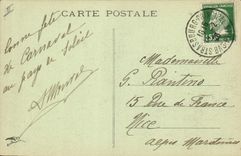 CARTE POSTALE
Bonne fête
de Carnaval
au pays du Soleil
Mademoiselle
G. Piantino
15 Rue de France
Nice
Alpes Maritimes